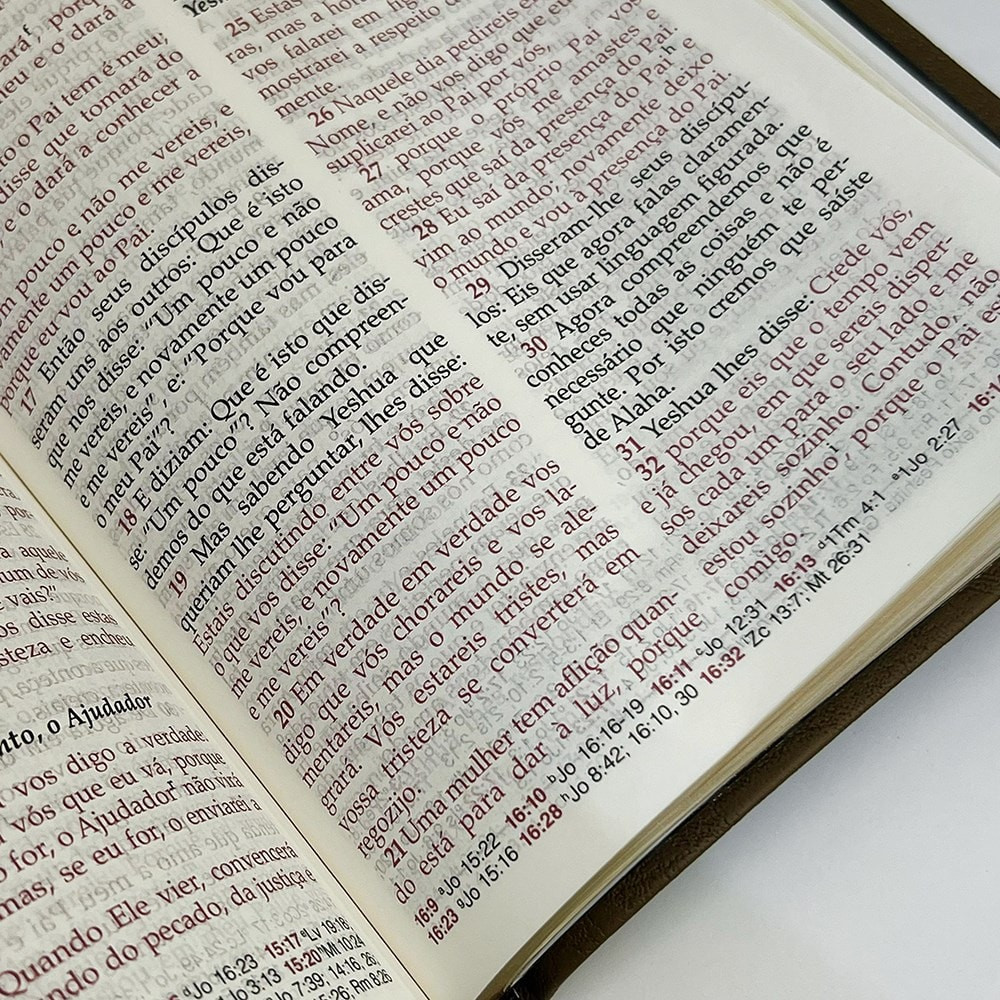 a aquele
num de vós
vais?"
os disse estas
steza, e encheu
nto, o Ajudador
vos digo a verdade:
vós que eu vá, porque
for, o Ajudador não virá
mas, se eu for, o enviarei a
Quando Ele vier, convencerá
ndo do pecado, da justiça e
Jo 16:23 15:17 Lv 19:18;
Jo 3:13 15:20 Mt 10:24
Jo 7:39; 14:16, 26;
15:26; Rm 8:26
o Pai tem é meu;
disse que tomará do
e o dará a conhecer a
m pouco e não me vereis, e
amente um pouco e me vereis,
porque eu vou ao Pai.
17 Então seus discípulos dis-
seram uns aos outros: Que é isto
que nos disse: "Um pouco e não
me vereis, e novamente um pouco
e me vereis", e: "Porque vou para
o meu Pai"?
18 E diziam: Que é isto que dis-
se: "Um pouco"? Não compreen-
demos do que está falando.
19 Mas sabendo Yeshua que
queriam lhe perguntar, lhes disse:
Estais discutindo entre vós sobre
o que vos disse: "Um pouco e não
me vereis, e novamente um pouco
e me vereis"?
20 Em verdade em verdade vos
digo que vós chorareis e vos la-
mentareis, mas o mundo se ale-
grará. Vós estareis tristes, mas
vossa tristeza se converterá em
regozijo.
21 Uma mulher tem aflição quan-
do está para dar à luz, porque
25 Estas
as, mas a hora
vos falarei em
mostrarei a respeito
mente.
26 Naquele dia pedireis em
Nome, e não vos digo que eu
suplicarei ao Pai por vós,
27 porque o próprio Pai vos
ama, porque vós me amastes e
crestes que saí da presença do Pai.
28 Eu saí da presença do Pai e
vim ao mundo, novamente deixo
o mundo e vou à presença do Pai.
29 Disseram-lhe seus discípu-
los: Eis que agora falas claramen-
te, sem usar linguagem figurada.
30 Agora compreendemos que
conheces todas as coisas e não é
necessário que ninguém te per-
gunte. Por isto cremos que saíste
de Alaha.
31 Yeshua lhes disse: Crede vós,
32 porque eis que o tempo vem
e já chegou, em que sereis disper-
sos cada um para o seu lado e me
deixareis sozinho. Contudo, não
estou sozinho, porque o Pai está
comigo.
16:9 Jo 15:22 16:10 Jo 16:16-19 16:11 Jo 12:31 16:13 1Tm 4:1 1Jo 2:27
16:23 Jo 15:16 16:28 Jo 8:42; 16:10, 30 16:32 Zc 13:7; Mt 26:31